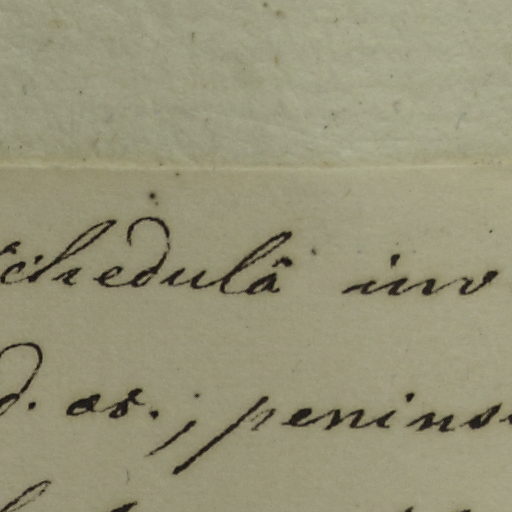 schedulâ inv
d. or.; penins